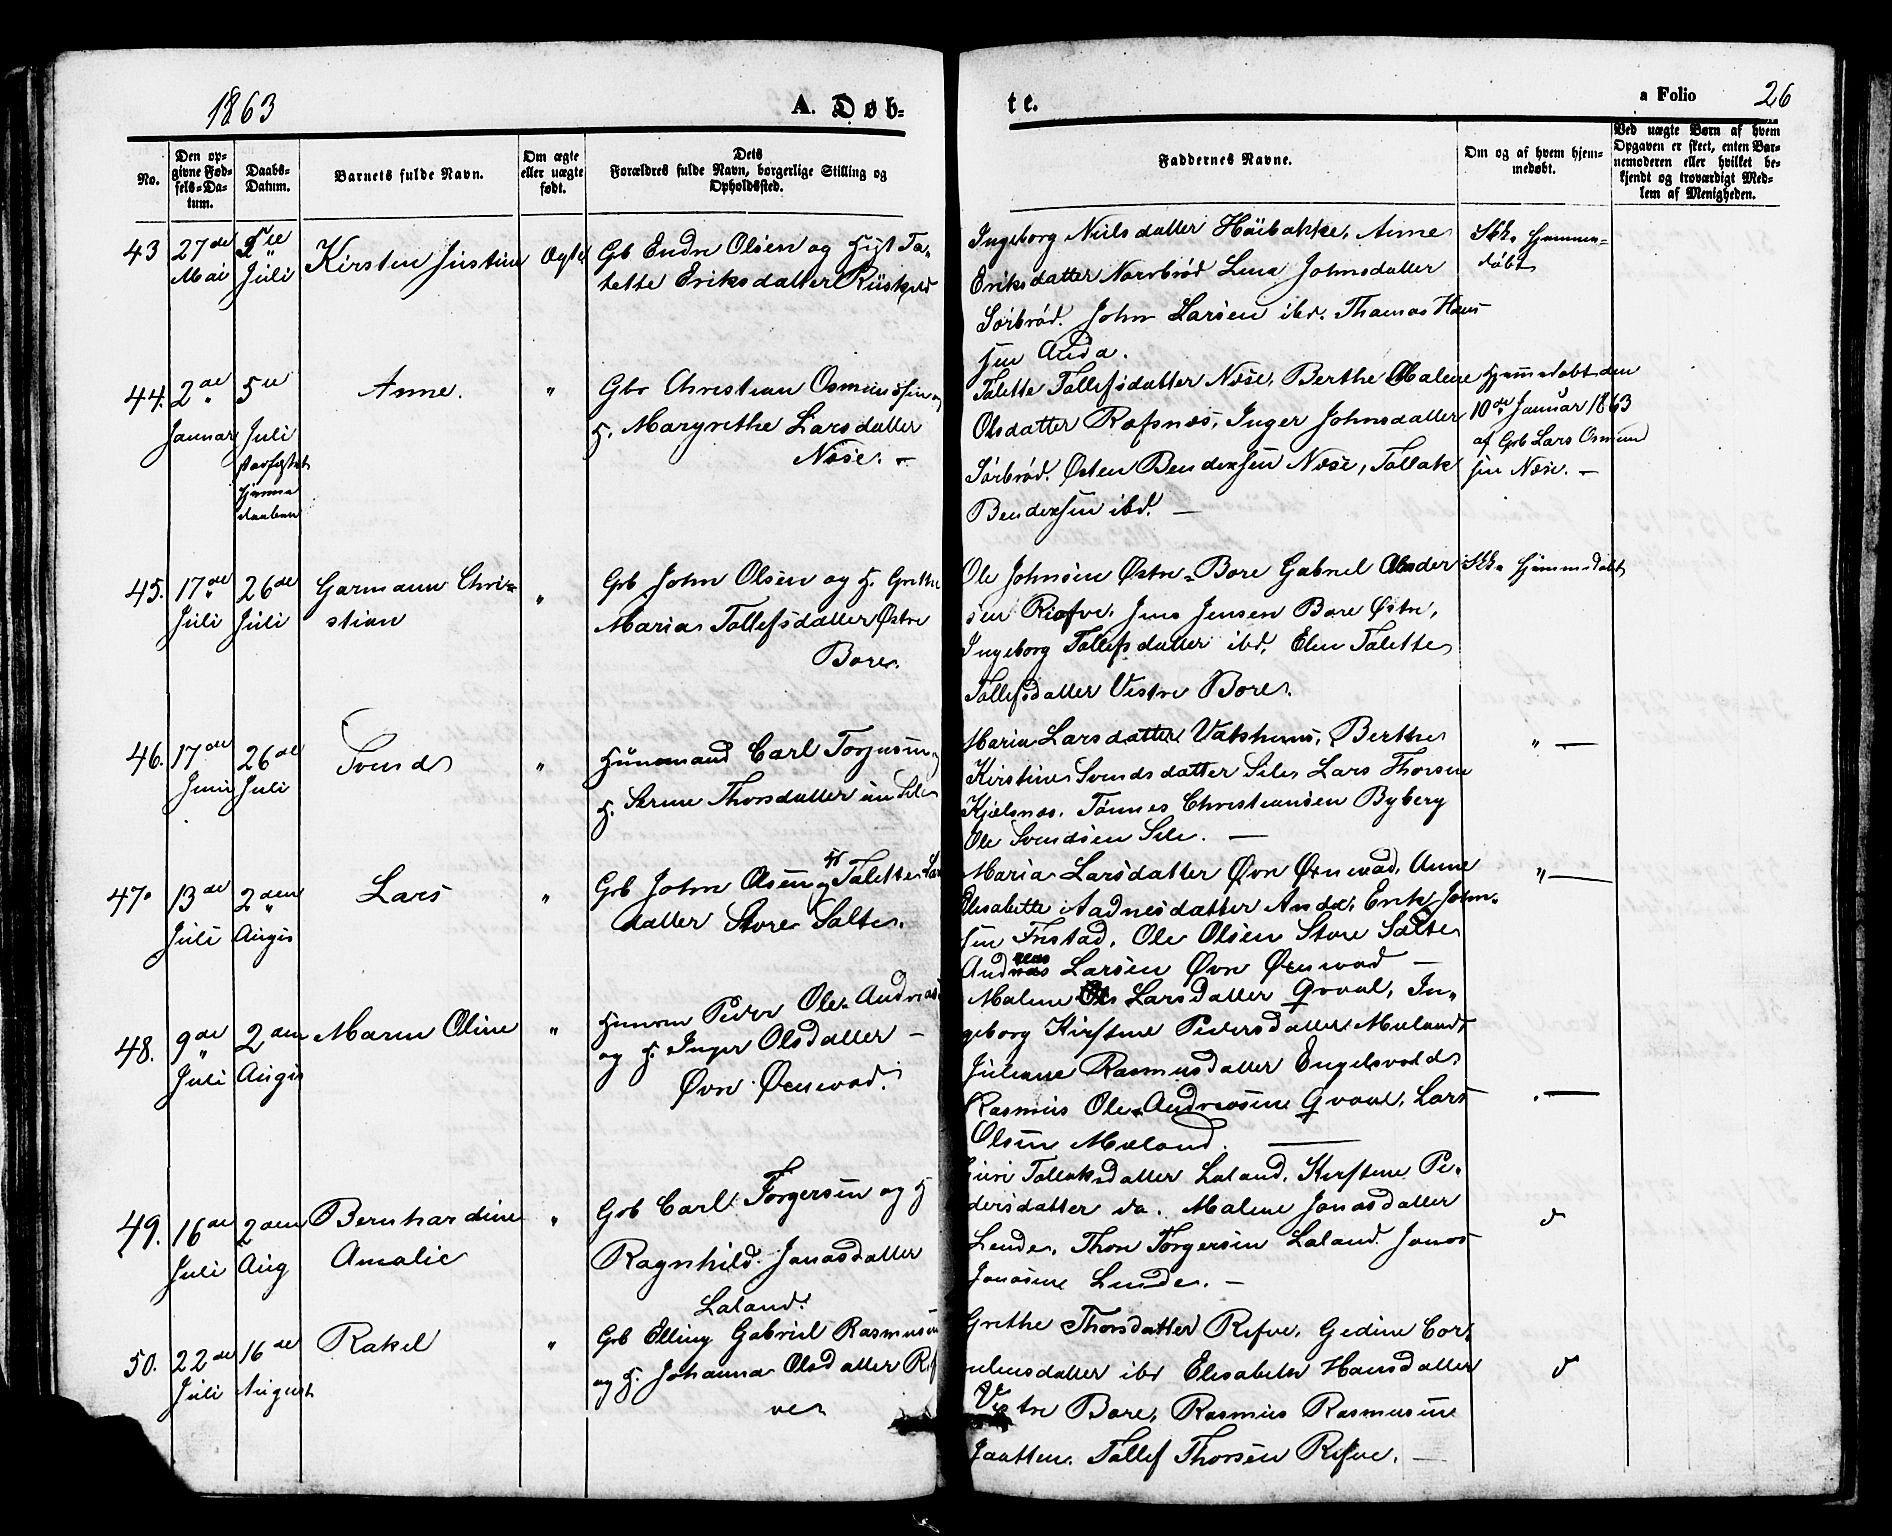 1863
A. Døb-
te.
a Folio 26
No.
Den op-
givne Fød-
sels-Da-
tum.
Daabs-
Datum.
Barnets fulde Navn.
Om ægte
eller uægte
født.
Dets
Forældres fulde Navn, borgerlige Stilling og
Opholdssted.
Faddernes Navne.
Om og af hvem hjem-
medøbt.
Ved uægte Børn af hvem
Opgaven er skeet, enten Bar-
nemoderen eller hvilket be-
kjendt og troværdigt Med-
lem af Menigheden.
43 27de
Mai
Juli
Kirsten Justine
Ægte
Gb Endre Olsen og Hust Ta-
lette Eriksdatter
Ingeborg Nielsdatter Höibakke, Anne
Eriksdatter Nordbröd Lena Johnsdatter
Sörbröd. John Larsen ibd. Thomas Han
sen Anda.
Ikke hjemme-
döbt
44. 2de
Januar
5te
Juli
stadfæstet
hjemme
daaben
Anne.
"
Gbr Christian Osmundsen og
H. Margrethe Larsdatter
Næse. -
Talette Tollefsdatter Næse, Berthe Malene
Olsdatter Refsnæs, Inger Johnsdatter
Sörbröd. Østen Bendixsen Næse, Tollak
Bendixsen ibd. -
Hjemmedöbt den
10de Januar 1863
af Grb Lars Osmun
sen Næse. -
45. 17de
Juli
26de
Juli
Garmann Chri-
stian
"
Grb John Olsen og H. Grethe
Maria Tollefsdatter Østre
Bore.
Ole Johnsen Østre-Bore Gabriel
sen Refve, Jens Jensen Bore Østre,
Ingeborg Tollefsdatter ibd, Elen Talette
Tollefsdatter Vestre Bore.
Ikke Hjemmedöbt
46. 17de
Juni
26de
Juli
Svend
"
Huusmand Carl Torgersen og
H. Serine Thorsdatter Sele
Maria Larsdatter Vatshuus, Berthe
Kirstine Svendsdatter Sele Lars Thorsen
Kjelsnæs. Tönnes Christiansen Byberg
Ole Svendsen Sele. -
" -
47. 13de
Juli
2den
Augus
Lars
"
Grb John Olsen og H Talette Lars
datter Store Salte.
Maria Larsdatter Øvre Ørnevad, Anne
Elisabette Aadnesdatter Anda, Erik John-
sen Friestad, Ole Olsen Store Salte
Andreas Larsen Øvre Ørnevad -
" -
48. 9de
Juli
2den
Augus
Maren Oline
"
Peder Ole Andreas
og H. Inger Olsdatter -
Øvre Ørnevad.
Malene Larsdatter Qvaal, In-
geborg Kirstine Pedersdatter Meland,
Juliane Rasmusdatter Engelsvold
Rasmus Ole Andreasen Qvaal, Lars
Olsen Meland. -
" -
49. 16de
Juli
2den
Aug
Bernhardine
Amalie
"
Grb Carl Torgersen og H
Ragnhild Jonasdatter
Laland.
Siri Tollaksdatter Laland, Kirstine Pe-
dersdatter do. Malene Jonasdatter
Lende, Thore Torgersen Laland Jonas
Jonasen Lende. -
50. 22de
Juli
16de
August
Rakel
"
Grb Elling Gabriel Rasmusen
og H. Johanna Olsdatter Ref
ve
Grethe Thorsdatter Refve, Gedine Cor-
neliusdatter ibd Elisabeth Hansdatter
Vestre Bore, Rasmus Rasmusen
Jaatten. Tollef Thorsen Refve. -